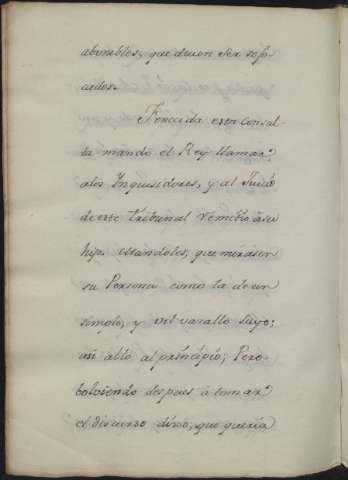 abonables, que deven ser sofo-
cados.
Fenecida esta Consul-
ta mandó el Rey llamar
a los Inquisidores, y al Juicio
de este Tribunal remitio à su
hijo mandoles, que mirasen
su Persona como la de un
simple, y vil vasallo suyo;
asi abló al principio; Pero
bolviendo despues à tomar
el discurso dixo, que queria